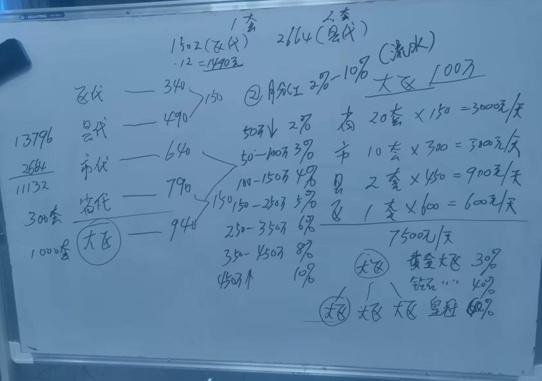 1套 2套
1502(飞代) 2664(县代)
12=1490元
(流水)
大飞 100万
飞代 — 340
150
县代 — 490
市代 — 640
省代 — 790
150
大飞 — 940
13796
2664
11132
300套
1000套
② 月分红 2%-10%
50万↓ 2%
50-100万 3%
100-150万 4%
150-250万 5%
250-350万 6%
350-450万 8%
450万↑ 10%
省 20套×150=3000元/天
市 10套×300=3000元/天
县 2套×450=900元/天
飞 1套×600=600元/天
7500元/天
大飞
大飞 大飞 大飞
黄金大飞 30%
钻石 〃 〃 40%
皇冠